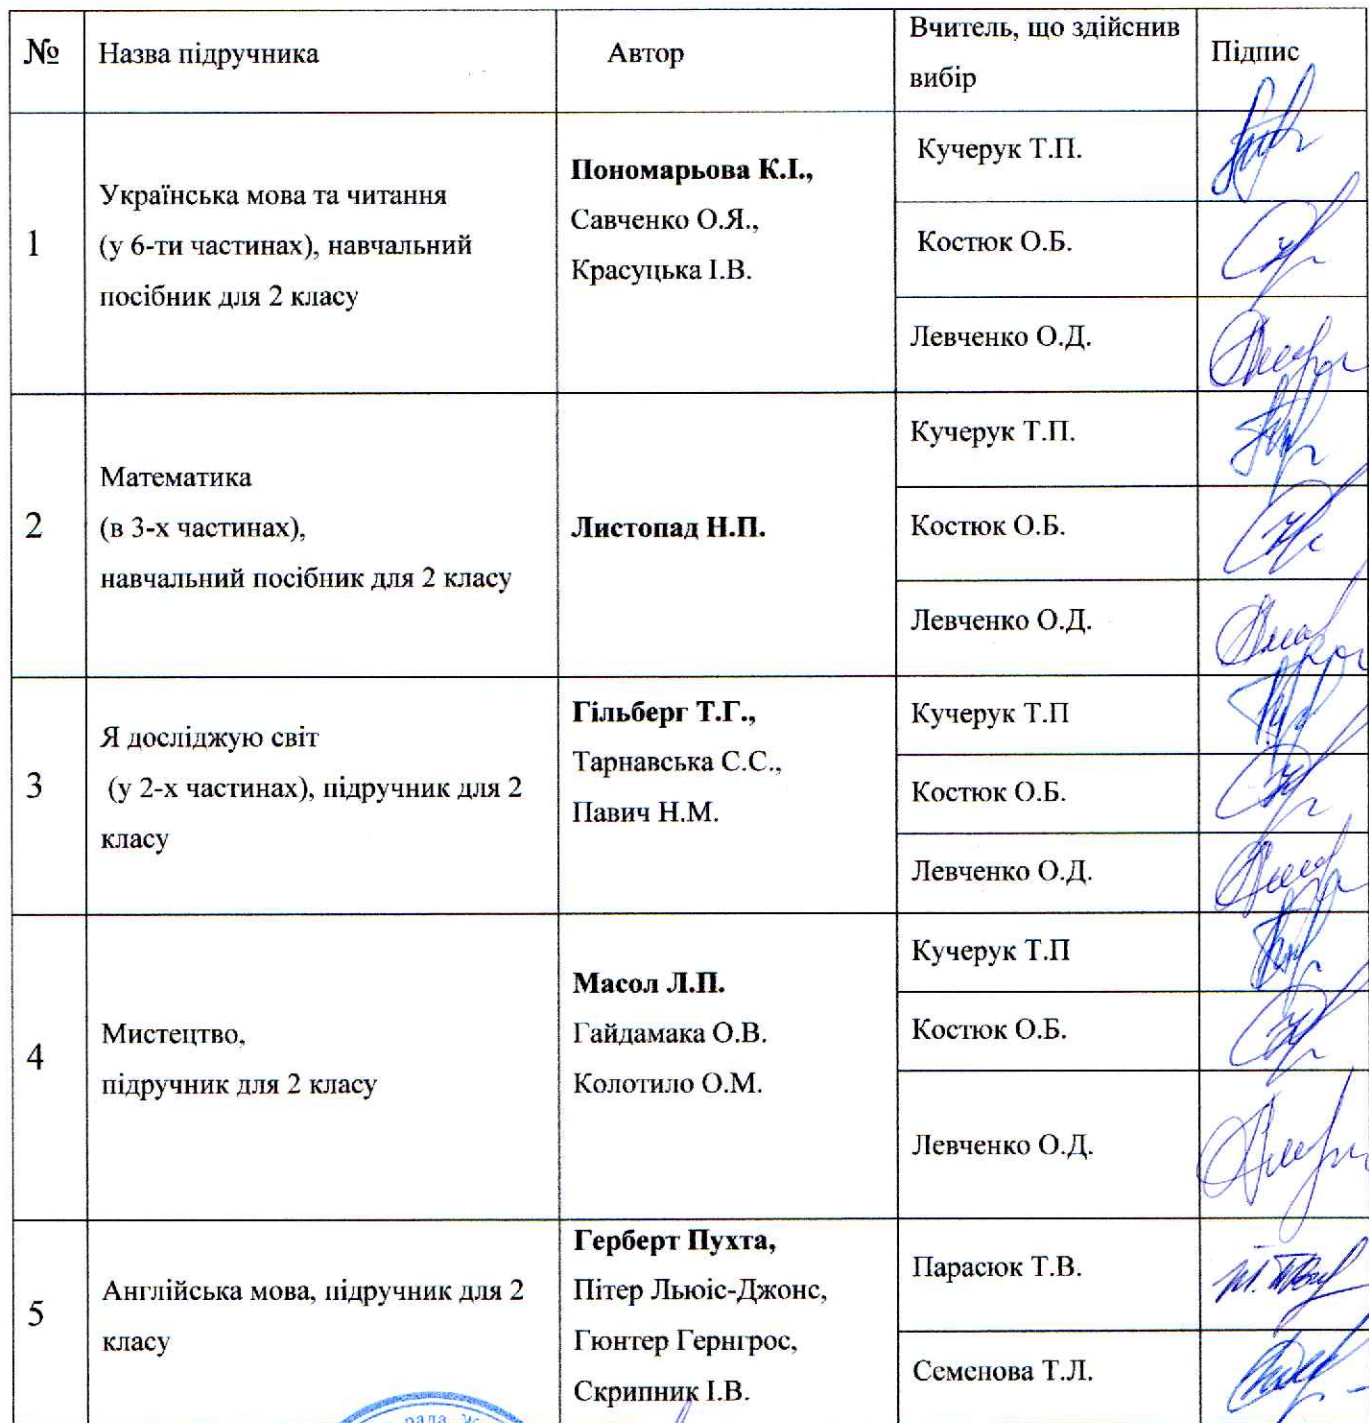 № Назва підручника Автор Вчитель, що здійснив вибір Підпис
1
Українська мова та читання
(у 6-ти частинах), навчальний
посібник для 2 класу
Пономарьова К.І.,
Савченко О.Я.,
Красуцька І.В.
Кучерук Т.П.
Костюк О.Б.
Левченко О.Д.
2
Математика
(в 3-х частинах),
навчальний посібник для 2 класу
Листопад Н.П.
Кучерук Т.П.
Костюк О.Б.
Левченко О.Д.
3
Я досліджую світ
(у 2-х частинах), підручник для 2
класу
Гільберг Т.Г.,
Тарнавська С.С.,
Павич Н.М.
Кучерук Т.П
Костюк О.Б.
Левченко О.Д.
4
Мистецтво,
підручник для 2 класу
Масол Л.П.
Гайдамака О.В.
Колотило О.М.
Кучерук Т.П
Костюк О.Б.
Левченко О.Д.
5
Англійська мова, підручник для 2
класу
Герберт Пухта,
Пітер Льюіс-Джонс,
Гюнтер Гернгрос,
Скрипник І.В.
Парасюк Т.В.
Семенова Т.Л.
рада